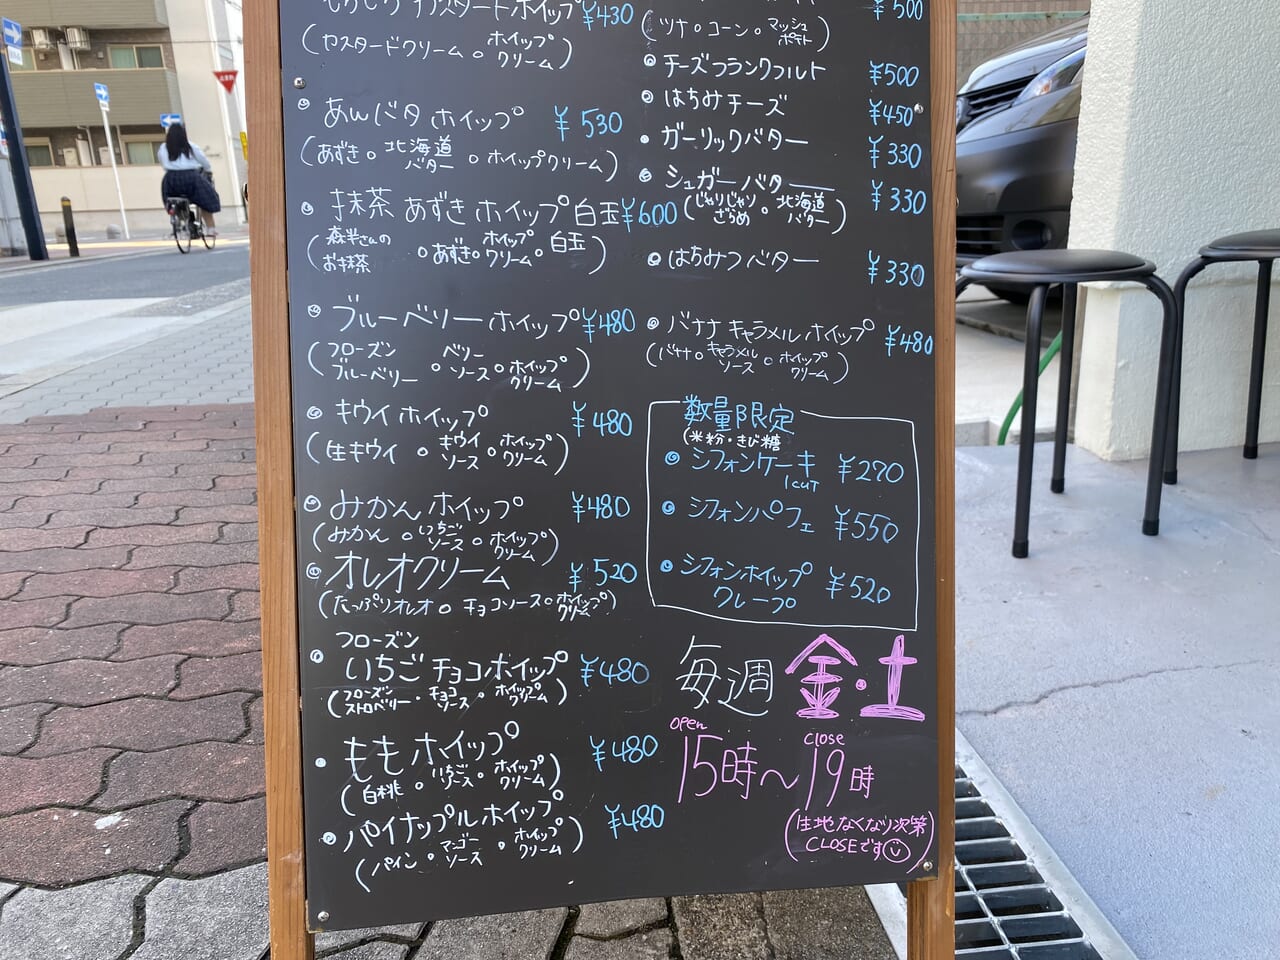 カスタードホイップ ¥430
(カスタードクリーム。ホイップクリーム)
あんバタホイップ ¥530
(あずき。北海道バター。ホイップクリーム)
抹茶あずきホイップ白玉 ¥600
(森半さんのお抹茶。あずき。ホイップクリーム。白玉)
ブルーベリーホイップ ¥480
(フローズンブルーベリー。ベリーソース。ホイップクリーム)
キウイホイップ ¥480
(生キウイ。キウイソース。ホイップクリーム)
みかんホイップ ¥480
(みかん。いちごソース。ホイップクリーム)
オレオクリーム ¥520
(たっぷりオレオ。チョコソース。ホイップクリーム)
フローズン
いちごチョコホイップ ¥480
(フローズンストロベリー・チョコソース。ホイップクリーム)
ももホイップ ¥480
(白桃。いちごソース。ホイップクリーム)
パイナップルホイップ ¥480
(パイン。マンゴーソース。ホイップクリーム)
¥500
(ツナ。コーン。マッシュポテト)
チーズフランクフルト ¥500
はちみチーズ ¥450
ガーリックバター ¥330
シュガーバター ¥330
(じゃりじゃりざらめ。北海道バター)
はちみつバター ¥330
バナナキャラメルホイップ ¥480
(バナナ。キャラメルソース。ホイップクリーム)
数量限定
(米粉・きび糖
シフォンケーキ 1cut ¥270
シフォンパフェ ¥550
シフォンホイップクレープ ¥520
毎週 金・土
open 15時〜close 19時
(生地なくなり次第
CLOSEです)